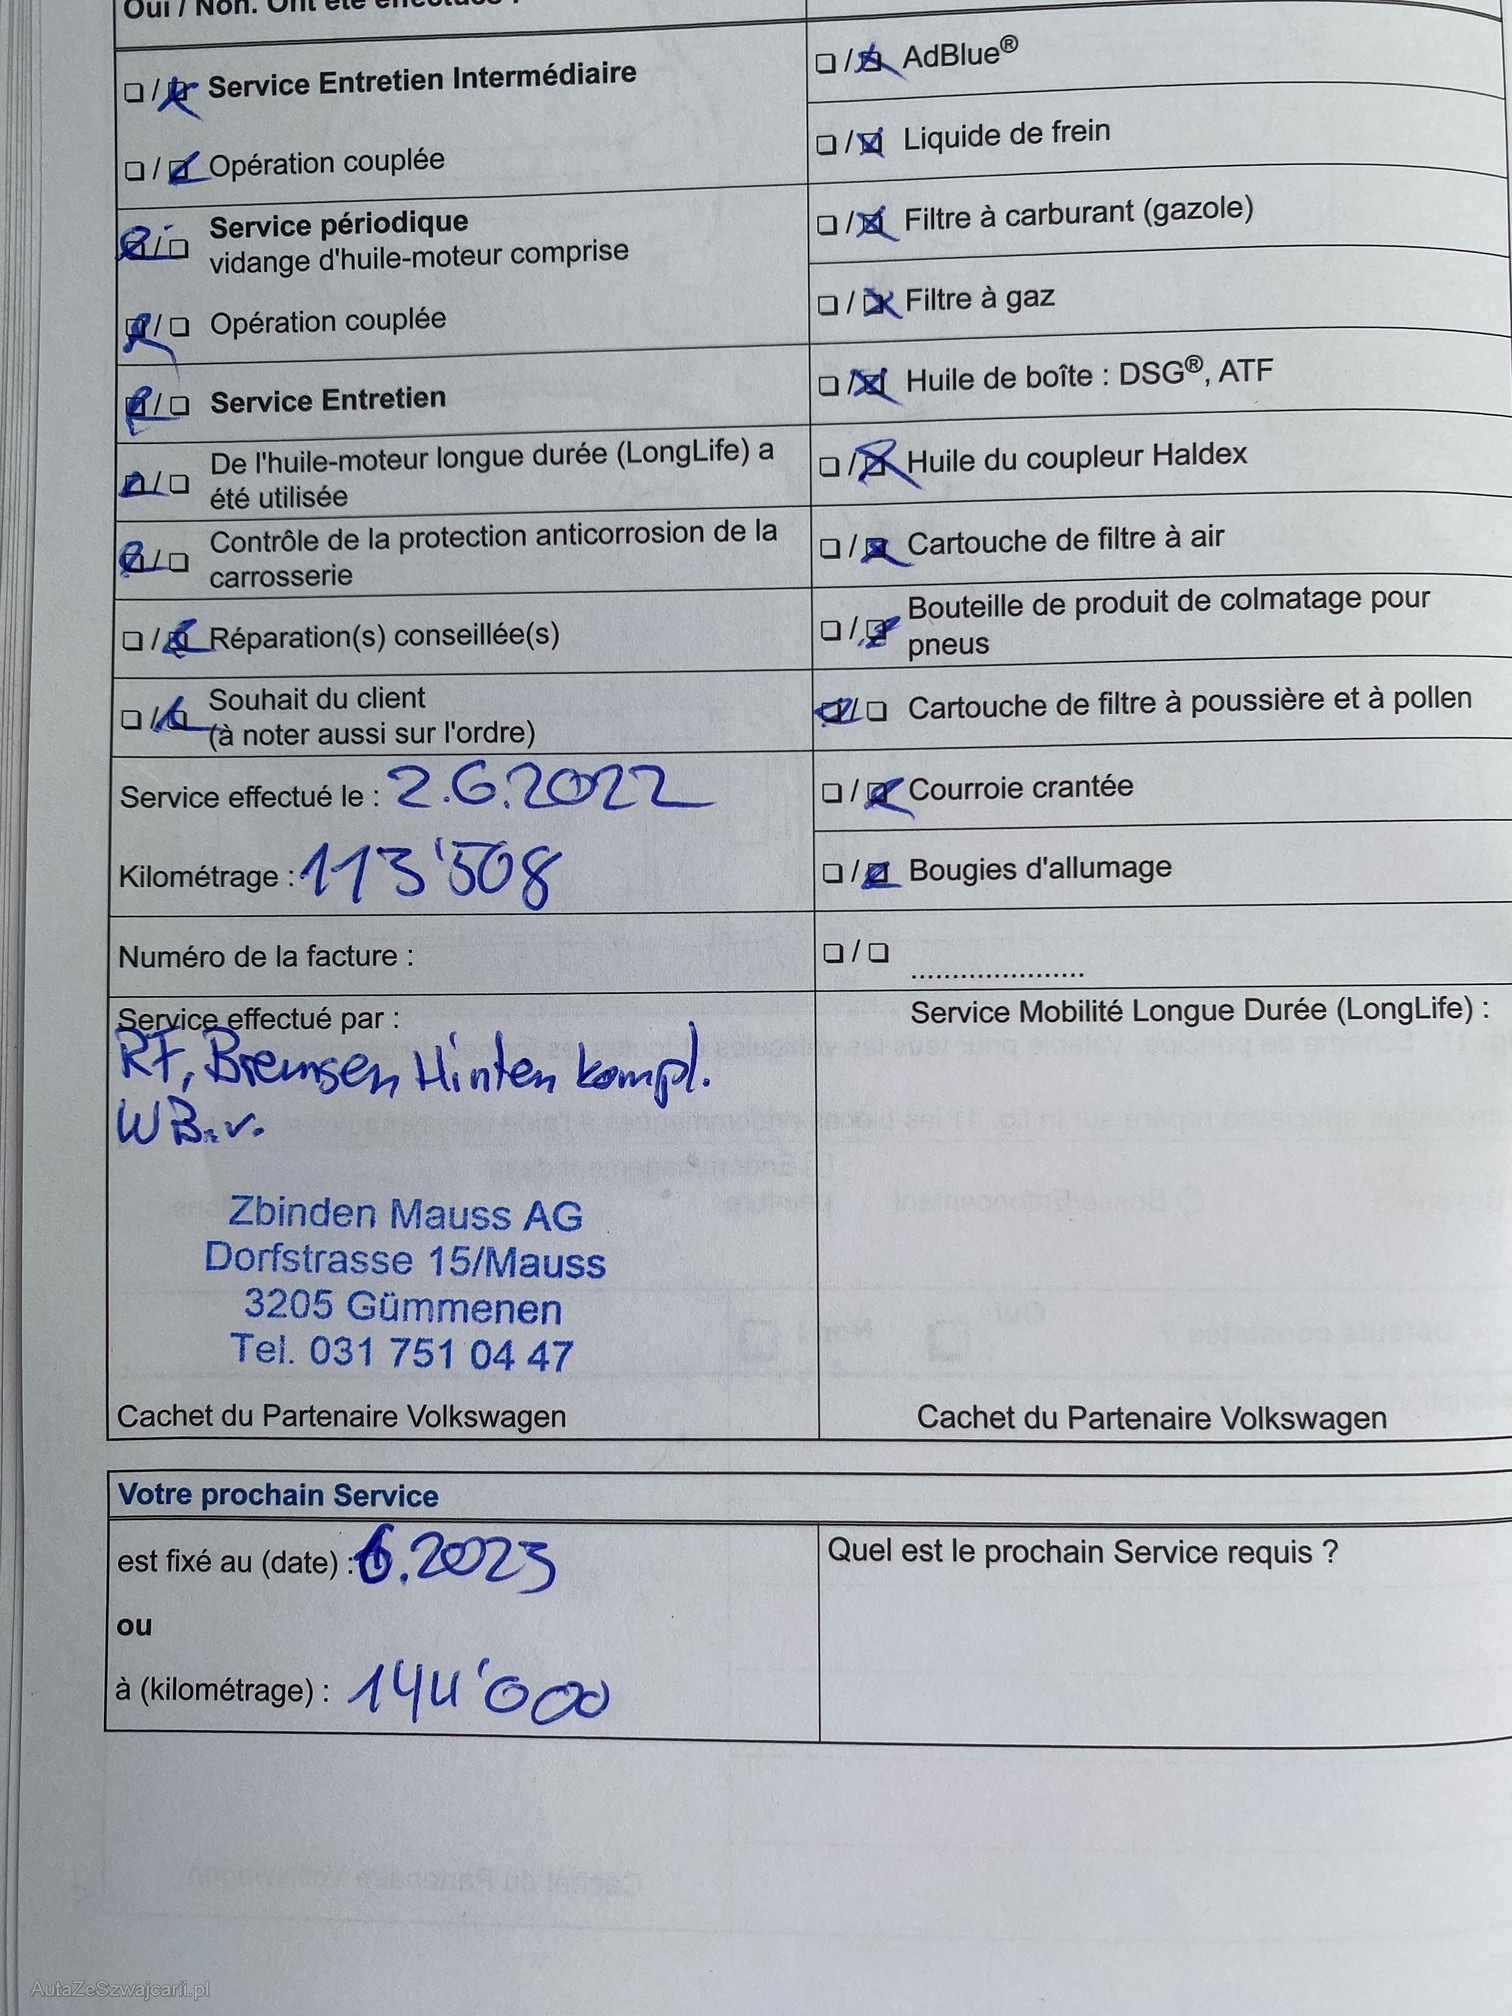 Oui / Non. Ont été effectués :
☐ / ☒ Service Entretien Intermédiaire
☐ / ☒ Opération couplée
☒ / ☐ Service périodique
vidange d'huile-moteur comprise
☒ / ☐ Opération couplée
☒ / ☐ Service Entretien
☒ / ☐ De l'huile-moteur longue durée (LongLife) a
été utilisée
☒ / ☐ Contrôle de la protection anticorrosion de la
carrosserie
☐ / ☒ Réparation(s) conseillée(s)
☐ / ☒ Souhait du client
(à noter aussi sur l'ordre)
Service effectué le : 2.6.2022
Kilométrage : 113'508
Numéro de la facture :
Service effectué par :
RF, Bremsen Hinten kompl.
WB.v.
Zbinden Mauss AG
Dorfstrasse 15/Mauss
3205 Gümmenen
Tel. 031 751 04 47
Cachet du Partenaire Volkswagen
☐ / ☒ AdBlue®
☐ / ☒ Liquide de frein
☐ / ☒ Filtre à carburant (gazole)
☐ / ☒ Filtre à gaz
☐ / ☒ Huile de boîte : DSG®, ATF
☐ / ☒ Huile du coupleur Haldex
☐ / ☒ Cartouche de filtre à air
☐ / ☒ Bouteille de produit de colmatage pour
pneus
☒ / ☐ Cartouche de filtre à poussière et à pollen
☐ / ☒ Courroie crantée
☐ / ☒ Bougies d'allumage
☐ / ☐ .....................
Service Mobilité Longue Durée (LongLife) :
Cachet du Partenaire Volkswagen
Votre prochain Service
est fixé au (date) : 6.2023
ou
à (kilométrage) : 144'000
Quel est le prochain Service requis ?
AutaZeSzwajcarii.pl